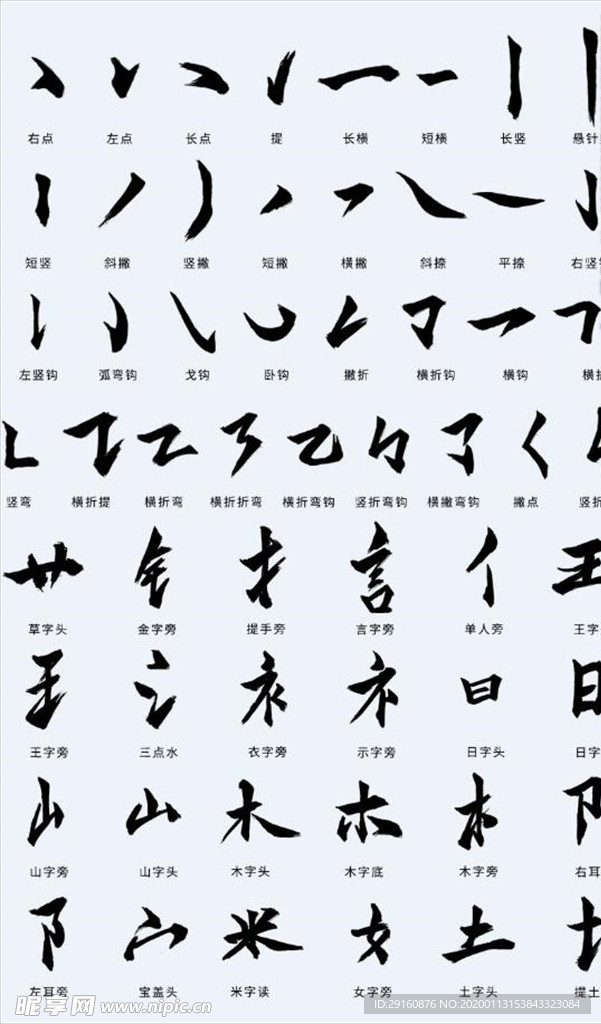 右点 左点 长点 提 长横 短横 长竖 悬针
短竖 斜撇 竖撇 短撇 横撇 斜捺 平捺 右竖
左竖钩 弧弯钩 戈钩 卧钩 撇折 横折钩 横钩 横
竖弯 横折提 横折弯 横折折弯 横折弯钩 竖折弯钩 横撇弯钩 撇点 竖折
草字头 金字旁 提手旁 言字旁 单人旁 王字
王字旁 三点水 衣字旁 示字旁 日字头 日字
山字旁 山字头 木字头 木字底 木字旁 右耳
左耳旁 宝盖头 米字读 女字旁 土字头 提土
昵享网 www.nipic.cn
ID:29160876 NO:20200113153843323084